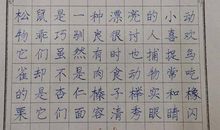 松鼠是一种漂亮的小动
物乖巧驯良很讨人喜欢
它们虽然有时也捕捉鸟
雀却不是肉食动物常吃
的是杏仁榛子榉实和橡
栗它们面容清秀眼睛闪